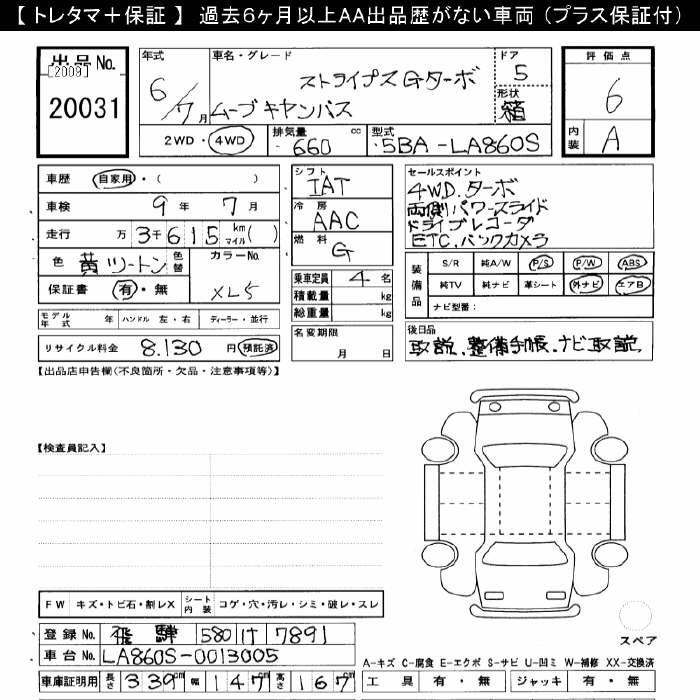 【 トレタマ＋保証 】 過去６ヶ月以上AA出品歴がない車両（プラス保証付）
出品No.
[2009]
20031
年式
6/7月
車名・グレード
ストライプスGターボ
ムーブキャンバス
ドア
5
形状
箱
評価点
6
内装
A
2WD・4WD
排気量
660 cc
型式
5BA-LA860S
車歴 自家用・( )
車検 9年 7月
走行 万 3千 615 km マイル( )
色 黄ツートン 色替
カラーNo.
XL5
保証書 有・無
シフト
IAT
冷房
AAC
燃料
G
セールスポイント
4WD.ターボ
両側パワースライド
ドライブレコーダ
ETC.バックカメラ
乗車定員 4 名
積載量 kg
総重量 kg
装備品
S/R 純A/W P/S P/W ABS
純TV 純ナビ 革シート 外ナビ エアB
ナビ型番:
モデル年式 年 ハンドル 左・右 ディーラー・並行
リサイクル料金 8.130 円 預託済
名変期限
月 日
後日品
取説.整備手帳.ナビ取説
【出品店申告欄(不良箇所・欠品・注意事項等)】
【検査員記入】
FW キズ・トビ石・割レX シート内装 コゲ・穴・汚レ・シミ・破レ・スレ
スペア
登録No. 飛騨 580 け 7891
車台No. LA860S-0013005
A-キズ C-腐食 E-エクボ S-サビ U-凹ミ W-補修 XX-交換済
車庫証明用 長さ 339cm 幅 147cm 高さ 167cm
工具 有・無 ジャッキ 有・無